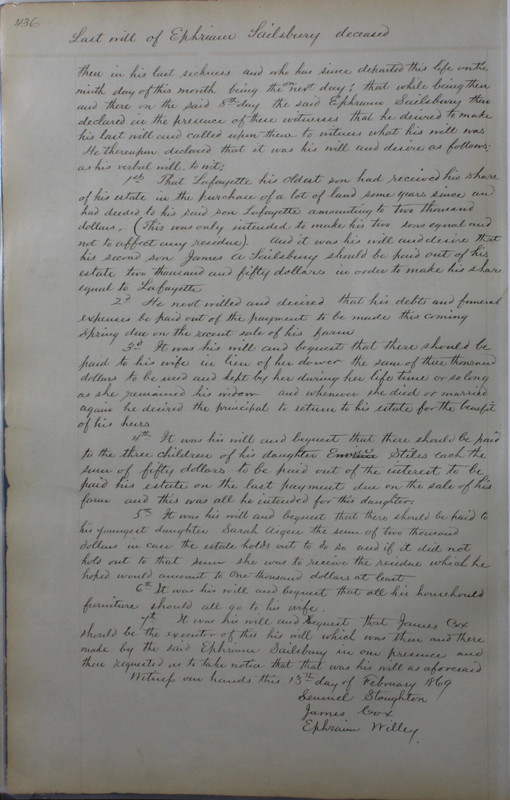 436
Last will of Ephriam Sailsbury deceased
then in his last sickness and who has since departed this life on the
ninth day of this month being the next day; that while being then
and there on the said 8th day the said Ephriam Sailsbury then
declared in the presence of these witnesses that he desired to make
his last will and called upon them to witness what his will was
He thereupon declared that it was his will and desire as follows
as his verbal will, to wit;
1st That Lafayette his oldest son had received his share
of his estate in the purchase of a lot of land some years since and
had deeded to his said son Lafayette amounting to two thousand
dollars, (This was only intended to make his two sons equal and
not to affect any residue). And it was his will and desire that
his second son James A Sailsbury should be paid out of his
estate two thousand and fifty dollars in order to make his share
equal to Lafayette
2d He next willed and desired that his debts and funeral
expenses be paid out of the payment to be made this coming
Spring due on the recent sale of his farm
3d It was his will and bequest that there should be
paid to his wife in lieu of her dower the sum of three thousand
dollars to be used and kept by her during her life time or so long
as she remained his widow and whenever she died or married
again he desired the principal to return to his estate for the benefit
of his heirs
4th It was his will and bequest that there should be paid
to the three children of his daughter Stiles each the
sum of fifty dollars to be paid out of the interest to be
paid his estate on the last payment due on the sale of his
farm and this was all he intended for this daughter.
5th It was his will and bequest that there should be paid to
his youngest daughter Sarah the sum of two thousand
dollars in case the estate holds out to do so and if it did not
hold out to that sum she was to receive the residue which he
hoped would amount to One thousand dollars at least
6th It was his will and bequest that all his household
furniture should all go to his wife.
7th It was his will and request that James Cox
should be the executor of this his will which was then and there
made by the said Ephriam Sailsbury in our presence and
then requested us to take notice that that was his will as aforesaid
Witness our hands this 13th day of February 1869
Stoughton
James Cox
Ephriam Willey